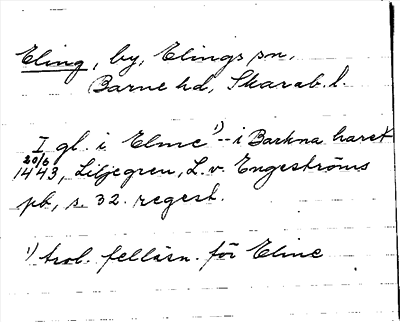 Eling, by, Elings sn,
Barne hd, Skarab. l.
I gl. i Elme ¹⁾ -- i Barkna haret
20/6 1443, Liljegren, L. v. Engeströms
pb, s. 32. regest.
¹⁾ trol. felläsn. för Eline